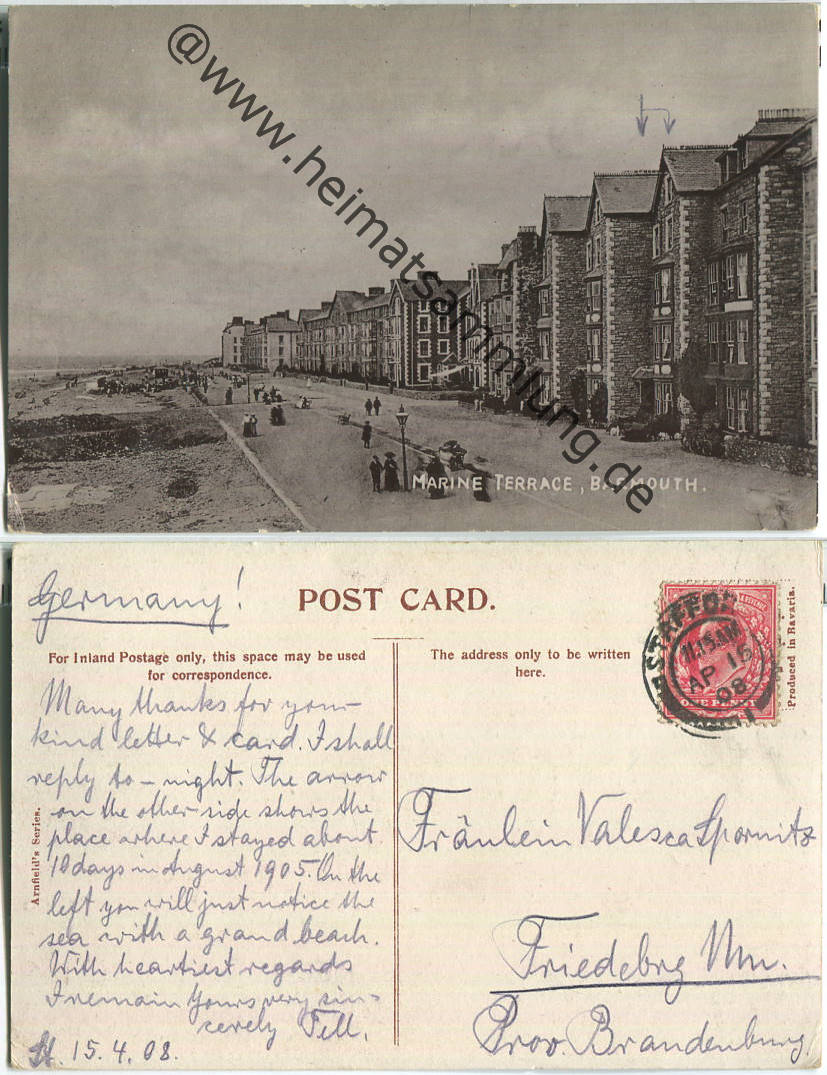 @www.heimatsammlung.de
MARINE TERRACE, BARMOUTH.
Germany!
POST CARD.
For Inland Postage only, this space may be used
for correspondence.
The address only to be written
here.
STAFFORD
11.15 AM
AP 16
08
ONE PENNY
Produced in Bavaria.
Arnfield's Series.
Many thanks for your
kind letter & card. I shall
reply to-night. The arrow
on the other side shows the
place where I stayed about
10 days in August 1905. On the
left you will just notice the
sea with a grand beach.
With heartiest regards
I remain Yours very sin-
cerely Fell.
St. 15.4.08.
Fräulein Valesca Spornitz
Friedebrg Nm.
Prov. Brandenburg.